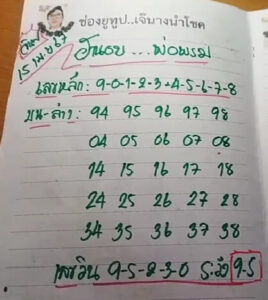 ช่องยูทูป..เจ๊นางนำโชค
15 เม.ย 67
... พ่อพรม
เลขหลัก: 9-0-1-2-3-4-5-6-7-8
บน-ล่าง: 94 95 96 97 98
04 05 06 07 08
14 15 16 17 18
24 25 26 27 28
34 35 36 37 38
9-5-8-3-0 ระวัง 9-5